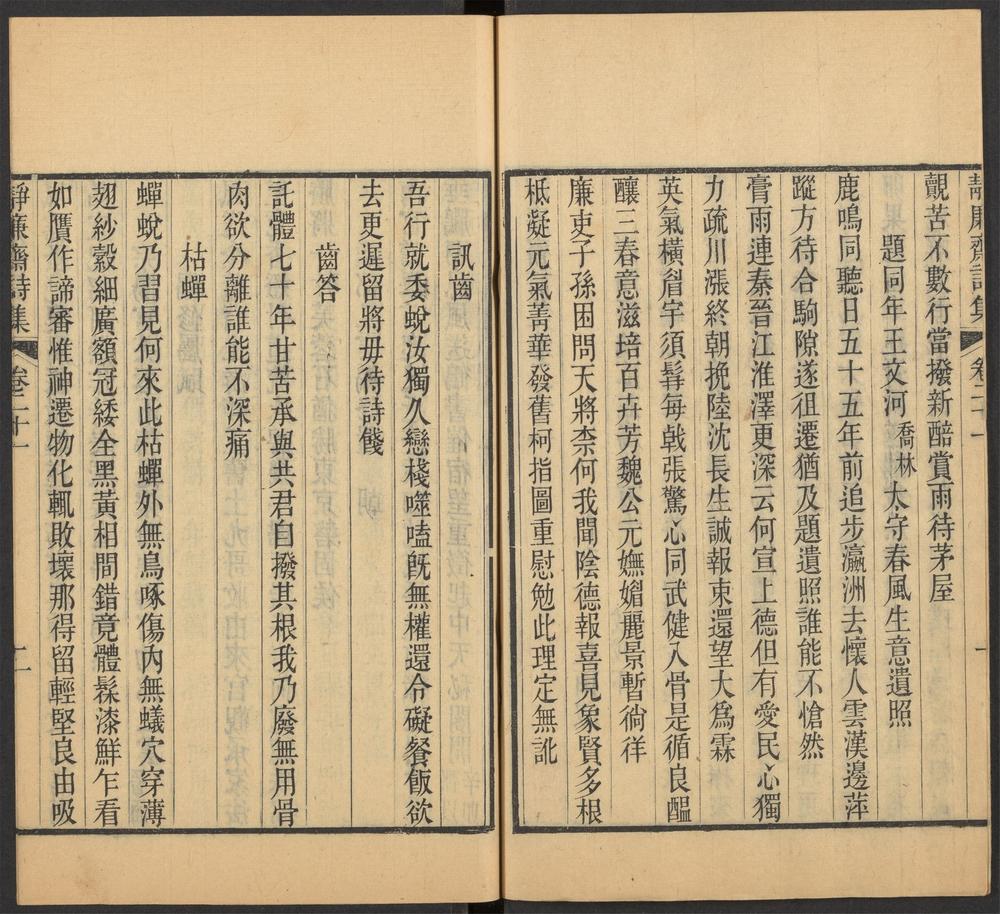 靜廉齋詩集 卷二十一 一
觀苦不數行當撥新醅賞雨待茅屋
題同年王文河喬林太守春風生意遺照
鹿鳴同聽日五十五年前追步瀛洲去懷人雲漢邊萍
蹤方待合駒隙遂徂遷猶及題遺照誰能不愴然
膏雨連秦晉江淮澤更深云何宣上德但有愛民心獨
力疏川漲終朝挽陸沈長生誠報東還望大爲霖
英氣橫眉宇須髯每戟張驚心同武健入骨是循良醞
釀三春意滋培百卉芳魏公元嫵媚麗景暫徜徉
廉吏子孫困問天將柰何我聞陰德報喜見象賢多根
柢凝元氣菁華發舊柯指圖重慰勉此理定無訛
訊齒
吾行就委蛻汝獨久戀棧噬嗑旣無權還令礙餐飯欲
去更遲留將毋待詩餞
齒答
託體七十年甘苦承與共君自撥其根我乃廢無用骨
肉欲分離誰能不深痛
枯蟬
蟬蛻乃習見何來此枯蟬外無鳥啄傷內無蟻穴穿薄
翅紗縠細廣額冠緌全黑黃相間錯竟體髹漆鮮乍看
如贋作諦審惟神遷物化輒敗壞那得留輕堅良由吸
靜廉齋詩集 卷二十一 二